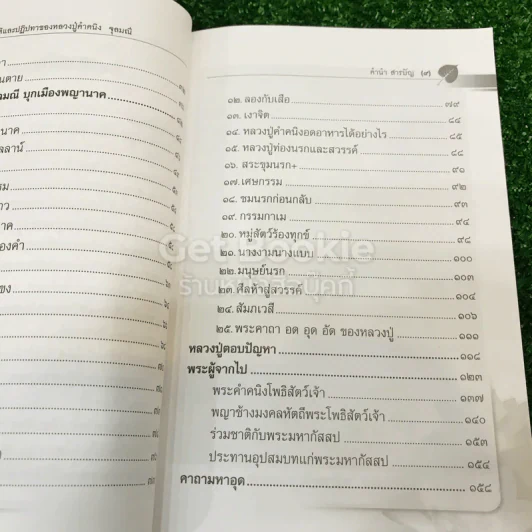 และปฏิปทาของหลวงปู่คำคนิง จุลมณี
บุกเมืองพญานาค
คำนำ สารบัญ (๙)
๑๒. ลองกับเสือ ๗๙
๑๓. เงาจิต ๘๔
๑๔. หลวงปู่คำคนิงอดอาหารได้อย่างไร ๘๕
๑๕. หลวงปู่ท่องนรกและสวรรค์ ๘๘
๑๖. สระขุมนรก+ ๙๑
๑๗. เศษกรรม ๙๒
๑๘. ชมนรกก่อนกลับ ๙๓
๑๙. กรรมกาเม ๙๔
๒๐. หมู่สัตว์ร้องทุกข์ ๙๘
๒๑. นางงามนางแบบ ๑๐๐
๒๒. มนุษย์นรก ๑๐๓
๒๓. ศีลห้าสู่สวรรค์ ๑๐๔
๒๔. สัมภเวสี ๑๐๖
๒๕. พระคาถา อด อุด อัด ของหลวงปู่ ๑๑๑
หลวงปู่ตอบปัญหา ๑๑๘
พระผู้จากไป ๑๒๓
พระคำคนิงโพธิสัตว์เจ้า ๑๓๗
พญาช้างมงคลหัตถีพระโพธิสัตว์เจ้า ๑๔๐
ร่วมชาติกับพระมหากัสสป ๑๕๓
ประทานอุปสมบทแก่พระมหากัสสป ๑๕๔
คาถามหาอุด ๑๕๘
Get Bookie
ร้านหนังสือบุ๊คกี้